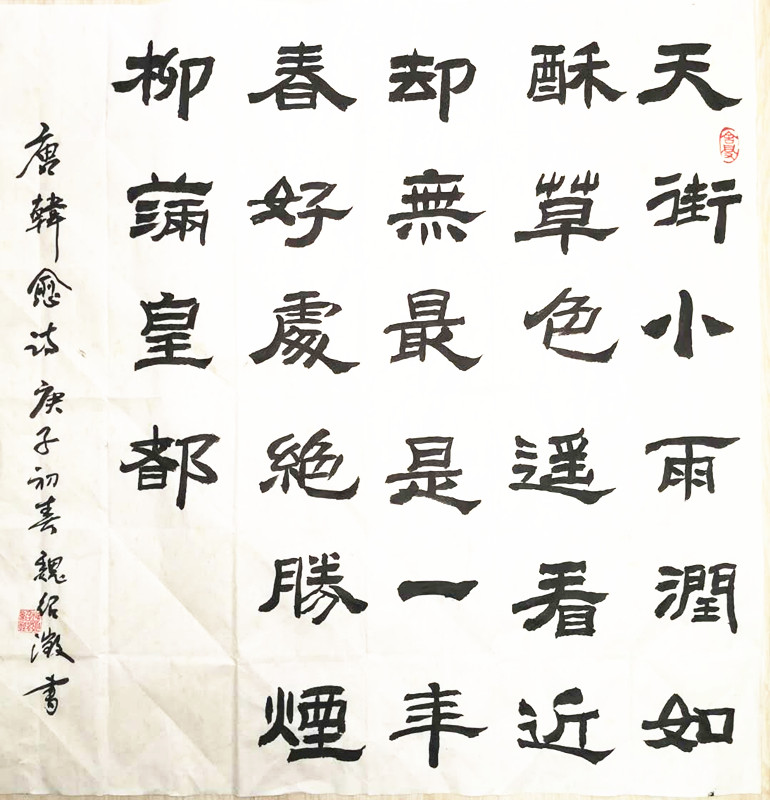 天街小雨潤如
酥草色遥看近
却無最是一年
春好處絶勝煙
柳滿皇都
唐韓愈诗庚子初春魏绍澂書